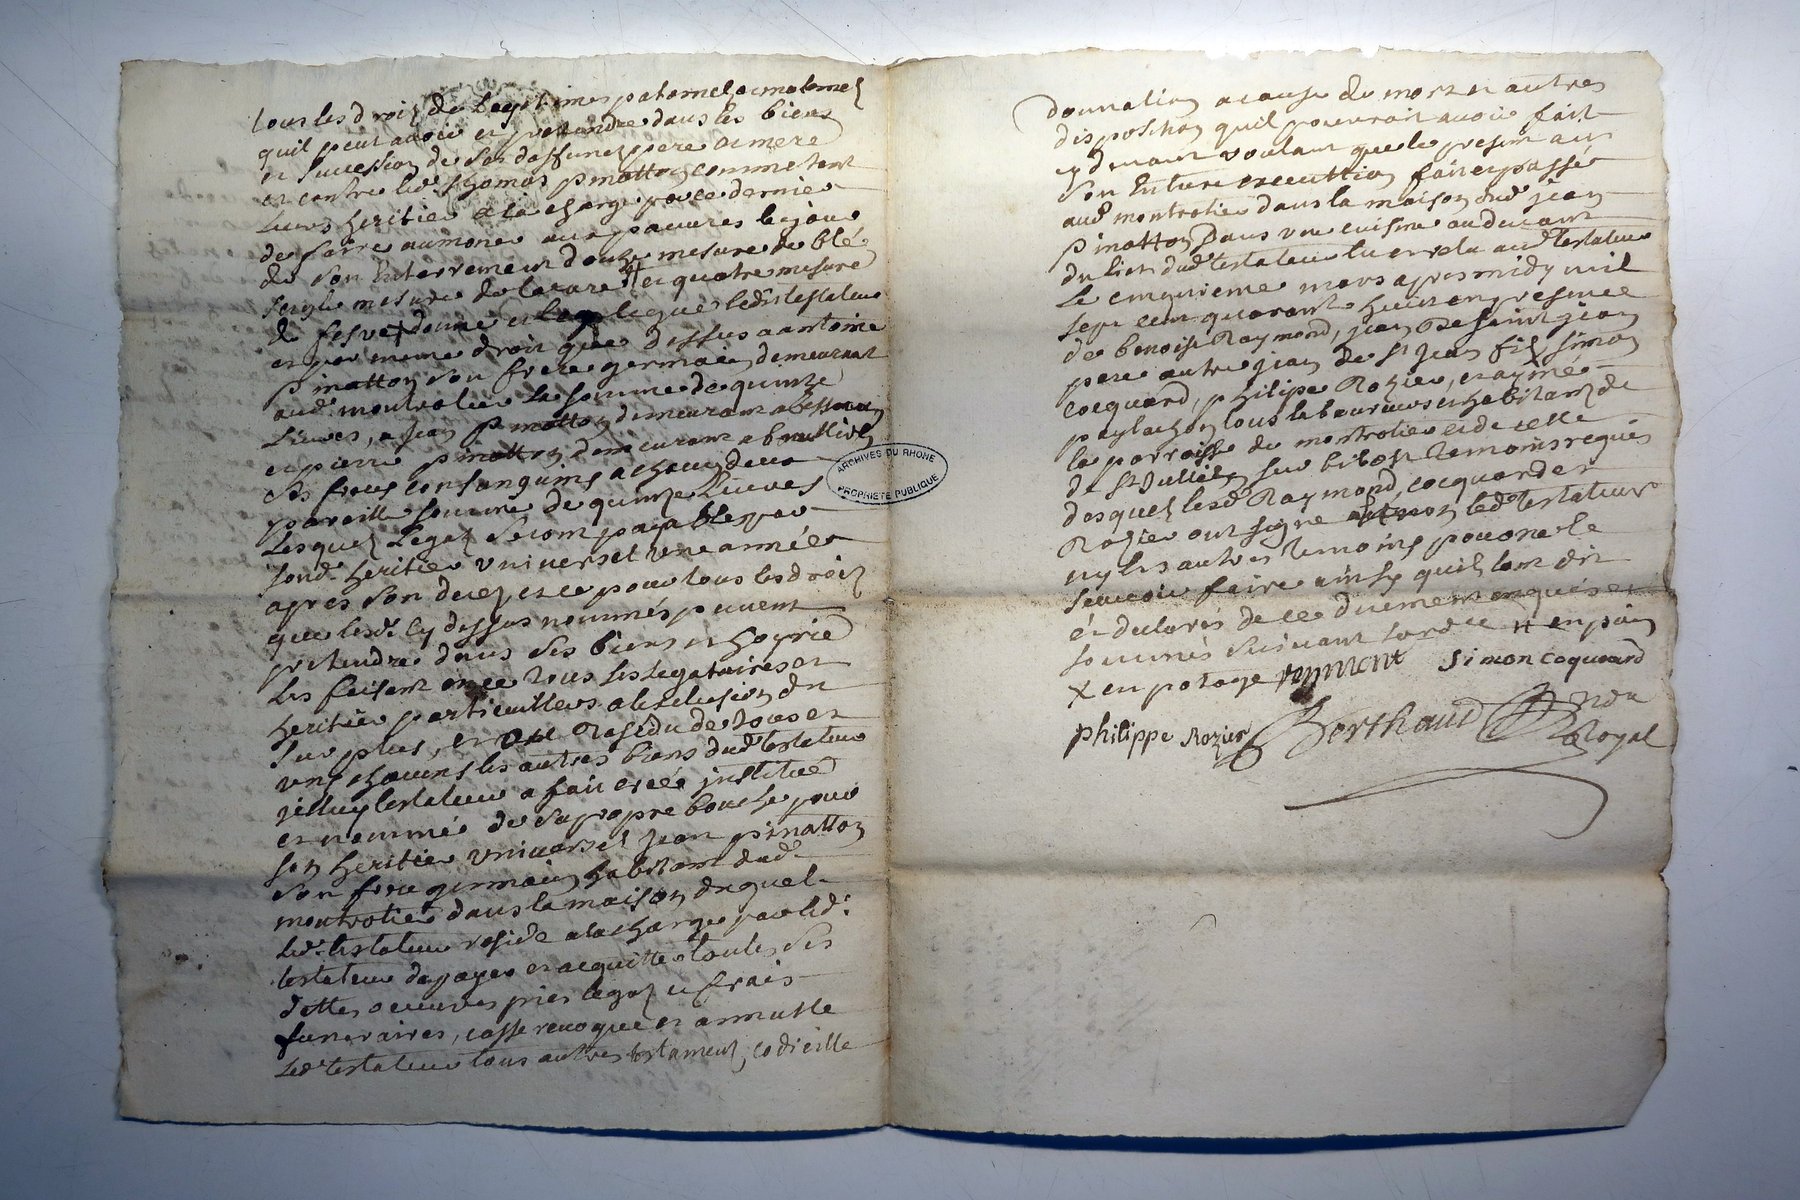 tous les droiz de legitimes paternelz et maternelz
quil peut avoir et pretendre dans les biens
et succession de ses deffunez pere et mere
et contre led. thomas pinatton comme tant
leurs heritier a la charge par ce dernier
de faire aumone aux pauvres le jour
de son enterrement douze mesure de blé
seigle mesure de larare # et quatre mesure
de feve X donne et legue ledit testateur
et par meme droit que dessus a antoine
pinatton son frere germain demeurant
aud. montrotier la somme de quinze
livres, a jean pinatton demeurant a
et pierre pinatton demeurant a
ses freres consanguins a chacun deux
pareille somme de quinze livres
lesquelz legaz seront payable par
sond. heritier universel une année
apres son decez et ce pour tous les droiz
que lesd. cy dessus nommés peuvent
pretendre dans ses biens et hoyrie
les faisant avec tous ses legataires et
heritier particulliers a lexclusion du
sur plus, et au residu de tous et
uns chacuns les autres biens dud. testateur
icelluy testateur a fait créé institué
et nommé de sa propre bouche pour
son heritier universel jean pinatton
son frere germain habitant dud.
montrotier dans la maison duquel
led. testateur reside a la charge par led.
testateur de payer et acquitter toutes ses
dettes oeuvres pies legaz et frais
funeraires, casse revoque et annulle
led. testateur tous autres testament, codicille
donnation a cause de mort et autres
disposition quil pourroit avoir fait
cy devant voulant que le present aie
son entiere execution fait et passé
aud. montrotier dans la maison dud. jean
pinatton dans une cuisine au devant
du lict dud. testateur lu et relu aud. testateur
le cinquieme mars apres midy mil
sept cent quarante huit en presence
de benoist Raymond, jean de saint jean
pere autre jean de st jean fils simon
cocquard, philipe Rozier, et aymé
paylachon tous laboureurs et habitans de
la parroisse de montrotier et de celle
de st Jullien sur bibost temoins requis
desquelz lesd. Raymond, cocquard et
Rozier ont signé et non led. testateur
ny les autres temoins pour ne le
scavoir faire ainsy quilz lont dit
et declarés de ce duement enquis et
sommés suivant lordce # en pain
X en potage reyment simon coquard
philippe Rozier Berthaud
Royal
ARCHIVES DU RHONE
PROPRIETE PUBLIQUE